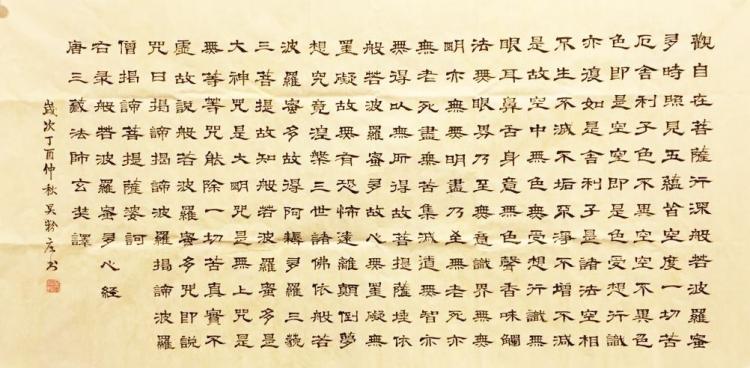 觀自在菩薩行深般若波羅蜜
多時照見五蘊皆空度一切苦
厄舍利子色不異空空不異色
色即是空空即是色受想行識
亦復如是舍利子是諸法空相
不生不滅不垢不淨不增不減
是故空中無色無受想行識無
眼耳鼻舌身意無色聲香味觸
法無眼界乃至無意識界無無
明亦無無明盡乃至無老死亦
無老死盡無苦集滅道無智亦
無得以無所得故菩提薩埵依
般若波羅蜜多故心無罣礙無
罣礙故無有恐怖遠離顛倒夢
想究竟涅槃三世諸佛依般若
波羅蜜多故得阿耨多羅三藐
三菩提故知般若波羅蜜多是
大神咒是大明咒是無上咒是
無等等咒能除一切苦真實不
虛故說般若波羅蜜多咒即說
咒曰揭諦揭諦波羅揭諦波羅
僧揭諦菩提薩婆訶
右录般若波羅蜜多心経
唐三藏法師玄奘譯
歲次丁酉仲秋吴书